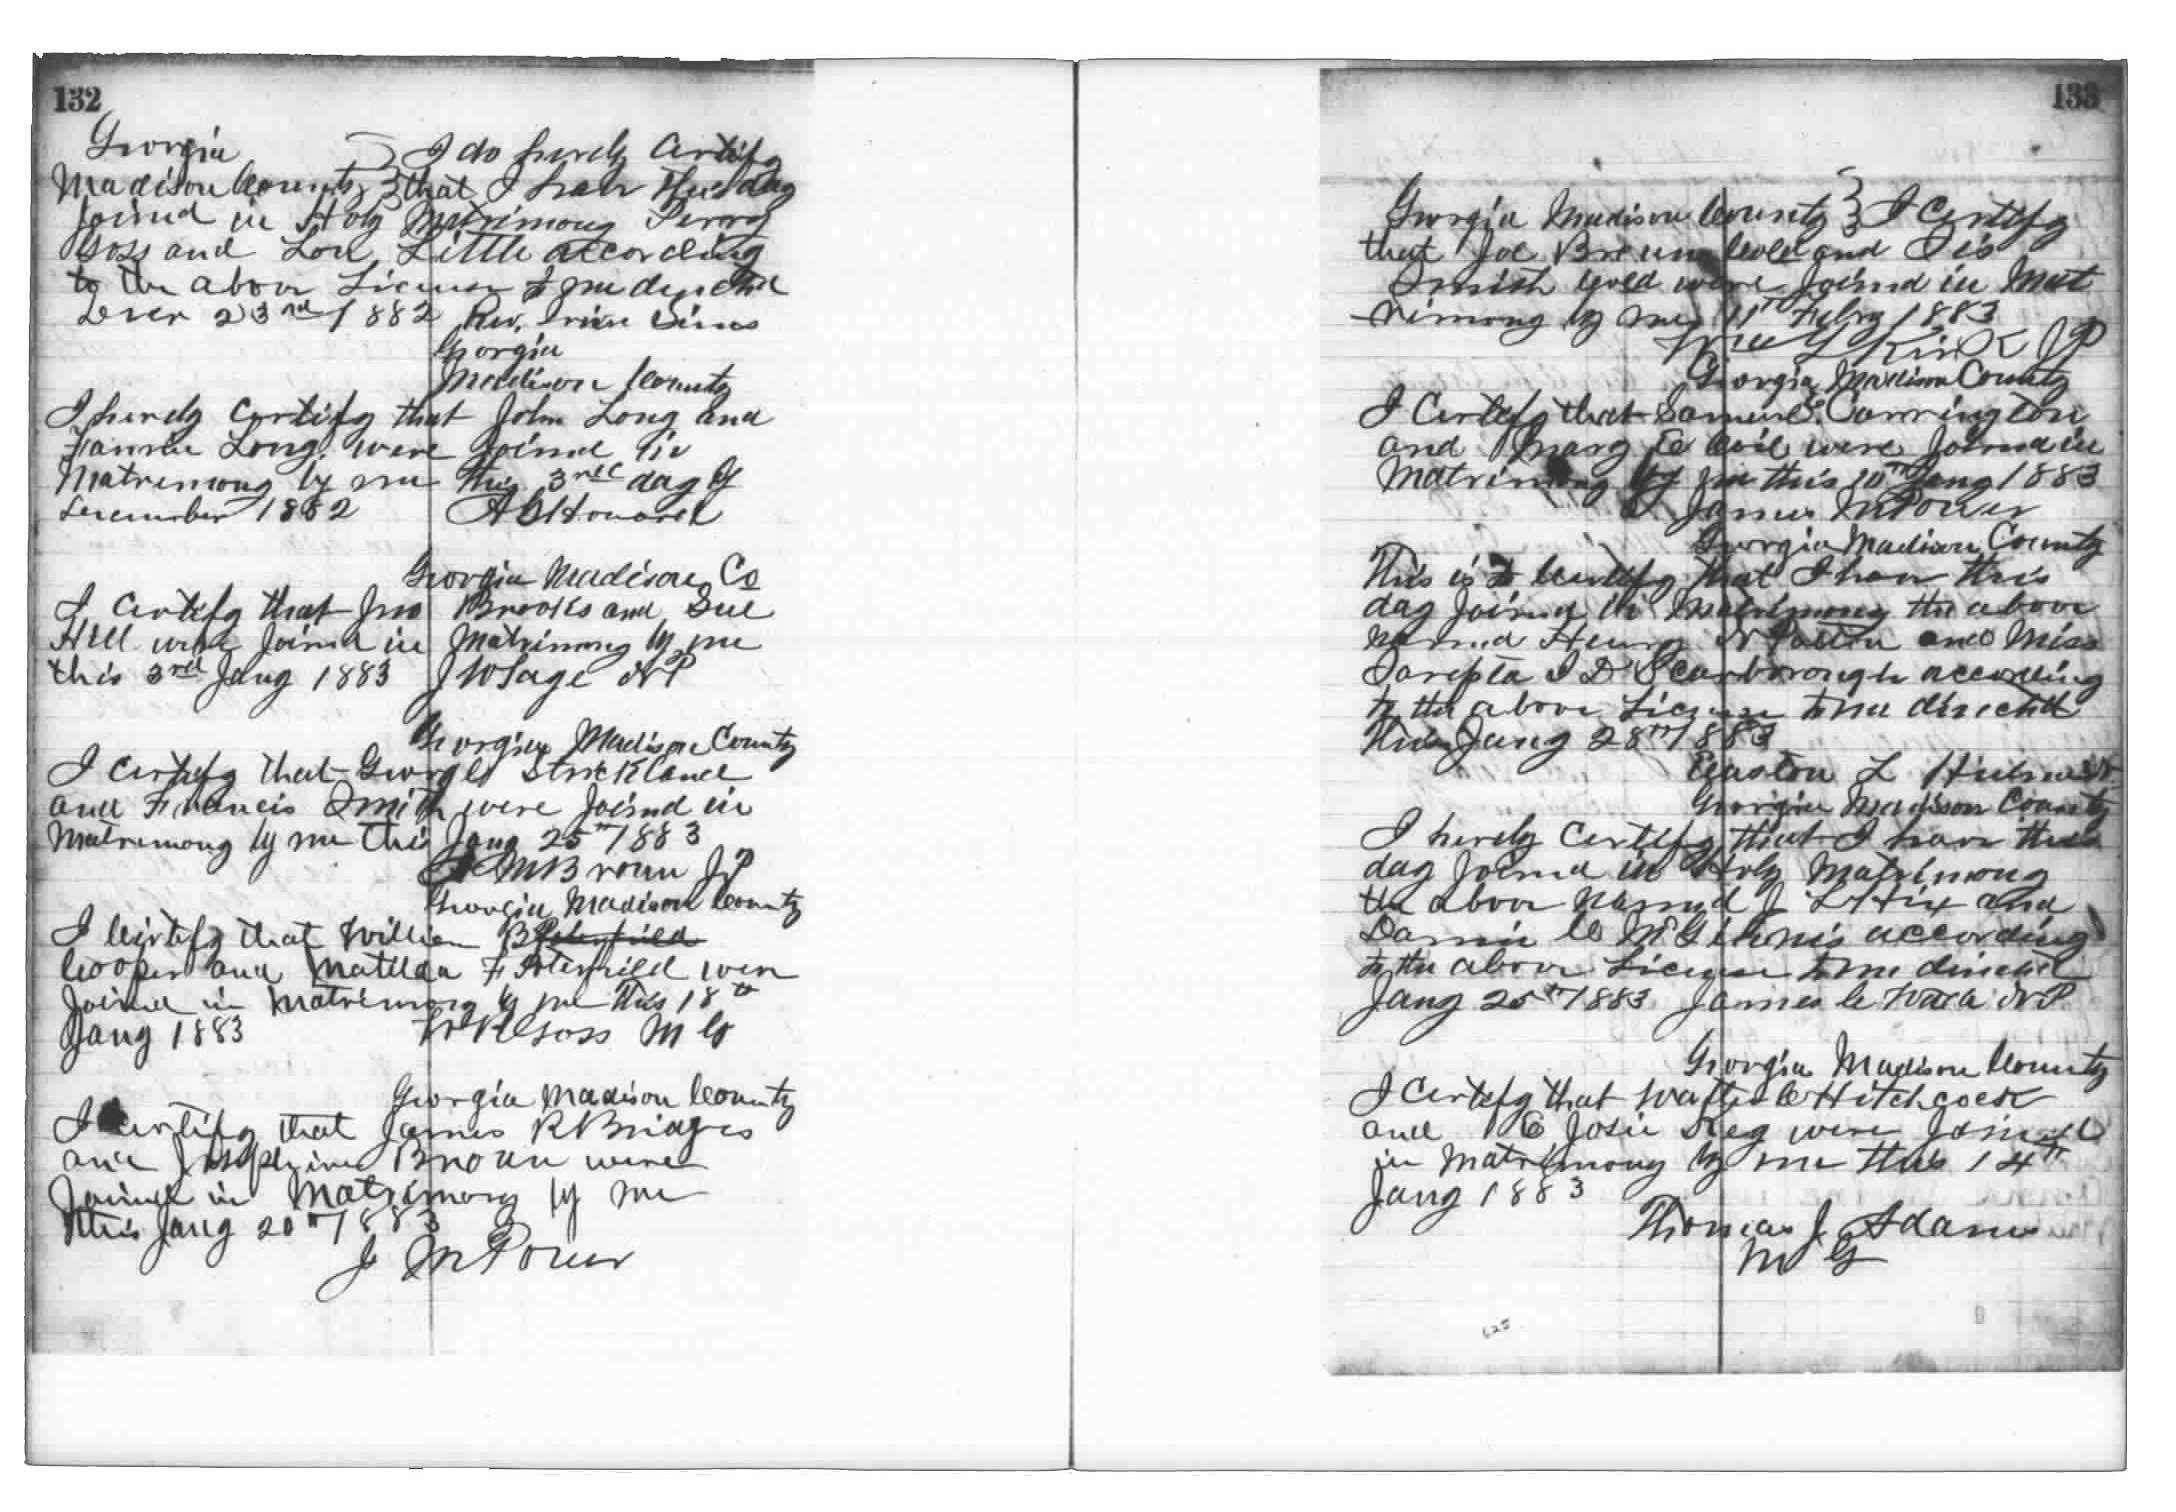 132
Georgia } I do hereby Certify
Madison County } that I have this day
Joined in Holy Matrimony Perry
Goss and Lou Little according
to the above License to me directed
Decr 23rd 1882 Rev. Sims
Georgia
Madison County
I hereby Certify that John Long and
Fannie Long were Joined in
Matrimony by me this 3rd day of
December 1882 A C Howard
Georgia Madison Co
I Certify that Jno Brooks and Sue
Hill were Joined in Matrimony by me
this 3rd Jany 1883 J W Sage N P
Georgia Madison County
I Certify that George Strickland
and Francis Smith were Joined in
Matrimony by me this Jany 25th 1883
M Brown J P
Georgia Madison County
I Certify that William B
Cooper and Matilda F Porterfield were
Joined in Matrimony by me this 18th
Jany 1883 Goss M G
Georgia Madison County
I Certify that James R Bridges
and Josephine Brown were
Joined in Matrimony by me
this Jany 20th 1883
J M Power
133
Georgia Madison County } I Certify
that Joe Brown Cold and
Smith Cold were Joined in Mat
rimony by me 11th Febry 1883
Kirk J P
Georgia Madison County
I Certify that Samuel Carrington
and Mary E Coil were Joined in
Matrimony by me this 10th Jany 1883
James M Power
Georgia Madison County
This is to Certify that I have this
day Joined in Matrimony the above
named Henry N and Miss
Sarepta I D Scarborough according
to the above License to me directed
this Jany 28th 1883
Easton L
Georgia Madison County
I hereby Certify that I have this
day Joined in Holy Matrimony
the above Named J L Hix and
C McGinnis according
to the above License to me directed
Jany 25th 1883 James C Ward N P
Georgia Madison County
I Certify that Walter C Hitchcock
and E Josie were Joined
in Matrimony by me this 14th
Jany 1883
Thomas J Adams
M G
625